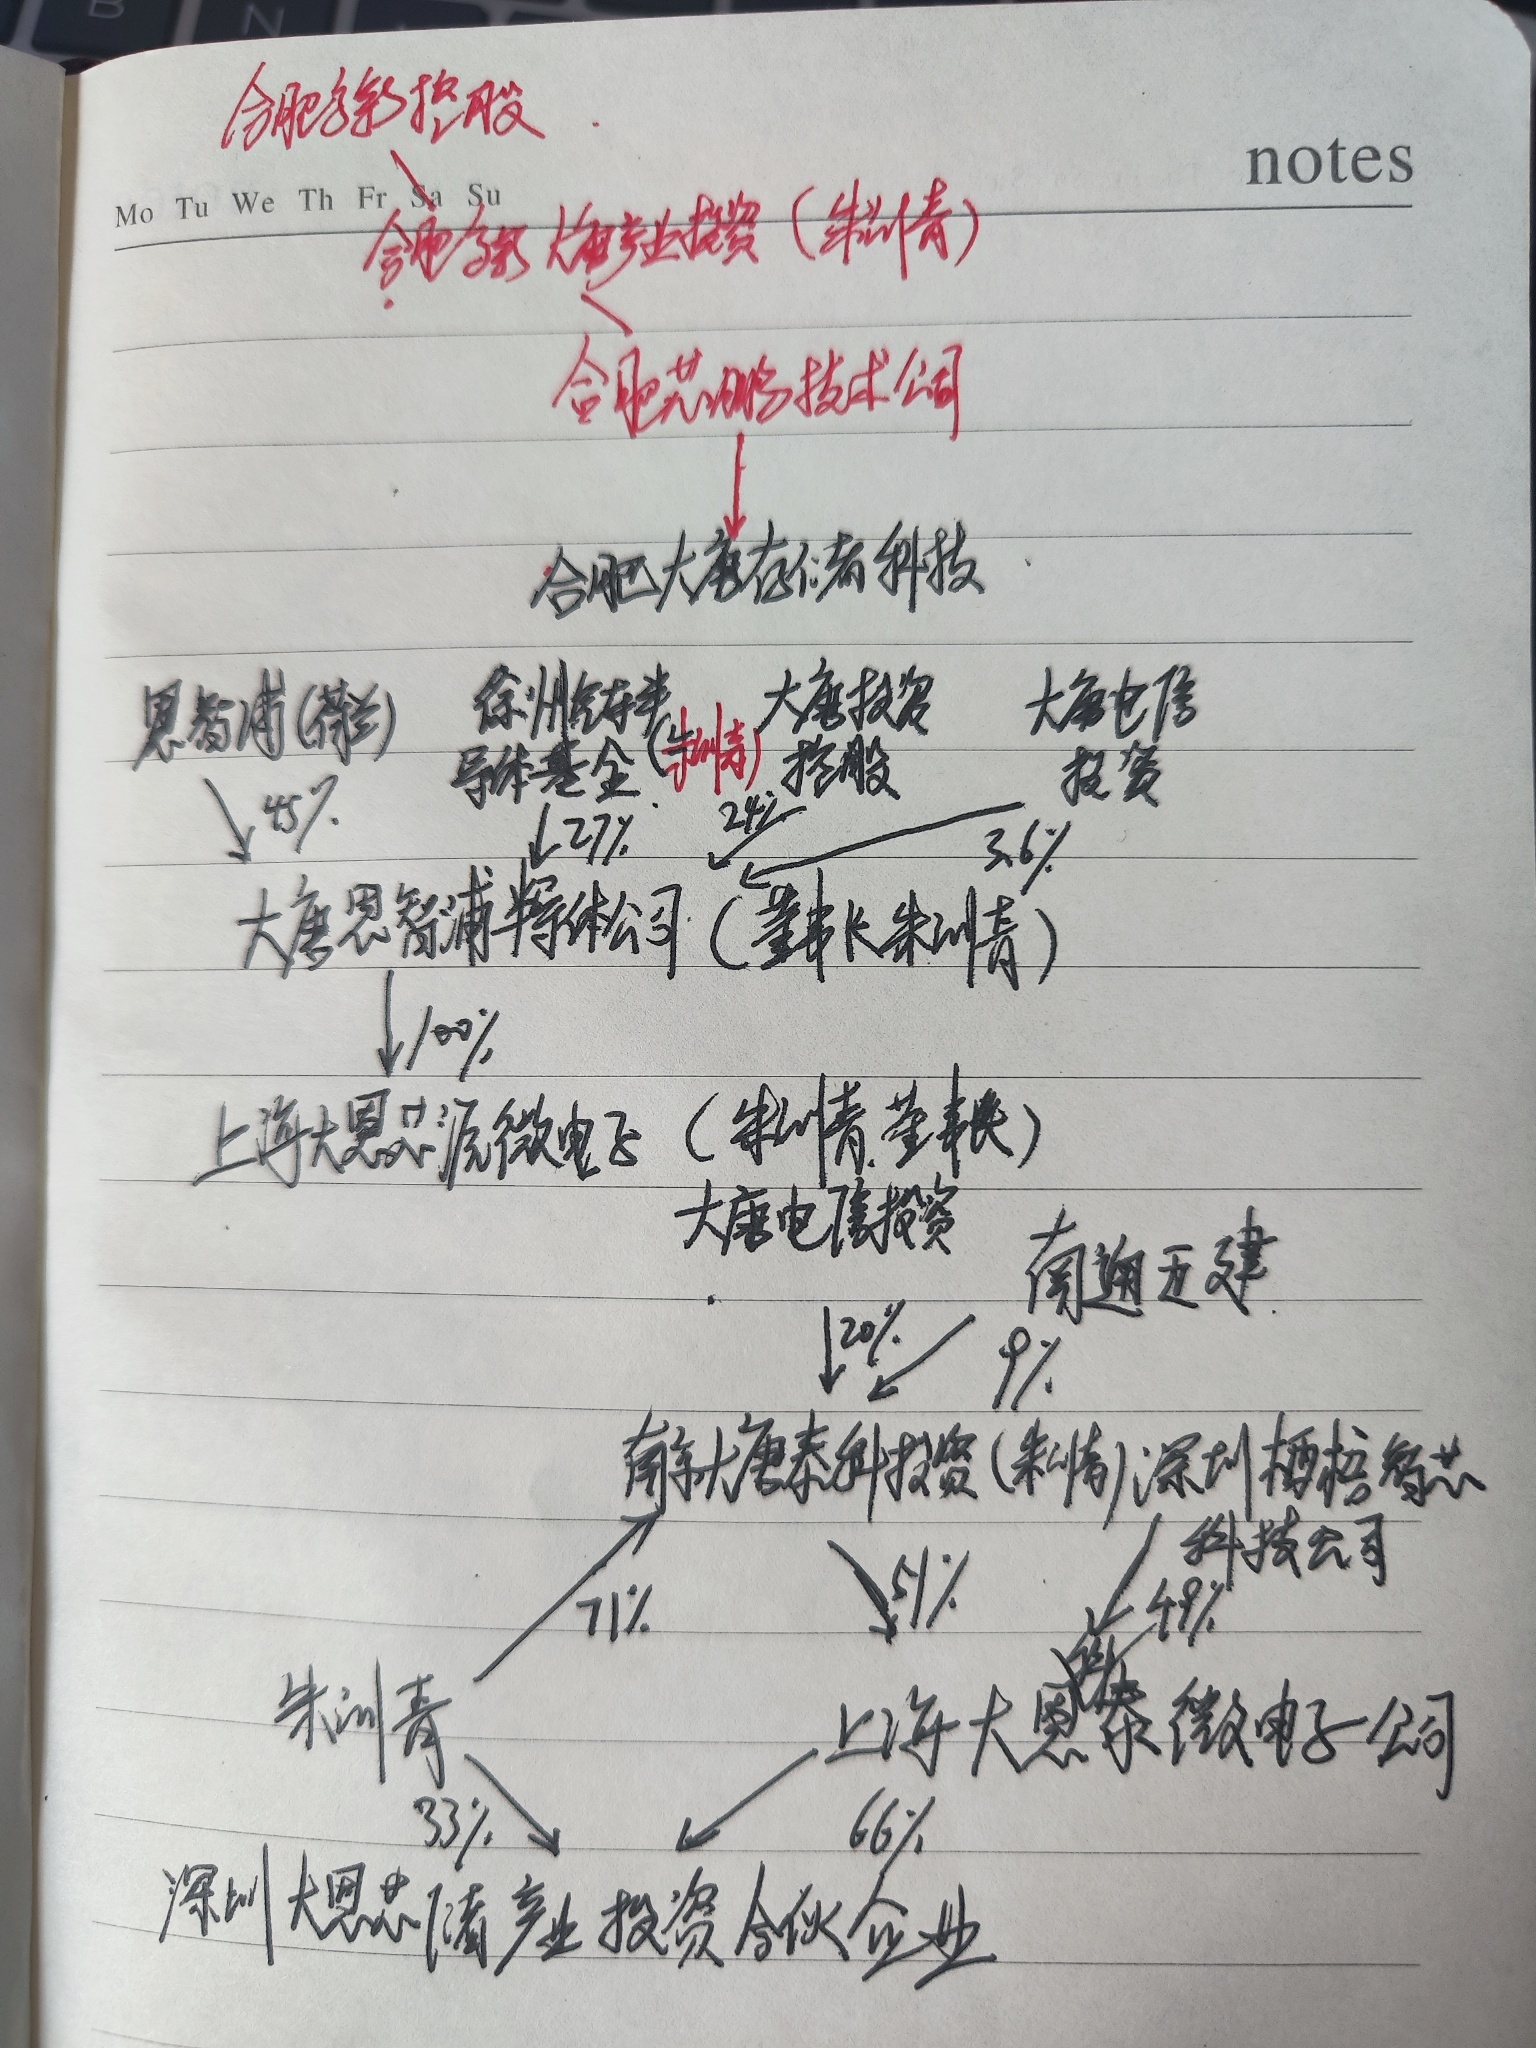 B N
合肥 控股
notes
Mo Tu We Th Fr Sa Su
合肥 大唐产业投资(朱训青)
合肥芯鹏技术公司
合肥大唐存储科技
恩智浦(荷兰) 徐州 半 大唐投资 大唐电信
导体基金(朱训青) 控股 投资
45% 27% 24% 3.6%
大唐恩智浦半导体公司(董事长朱训青)
100%
上海大恩芯源微电子(朱训青 董事长)
大唐电信投资
南通五建
20% 9%
南京大唐泰科投资(朱训青)深圳梧桐智芯
科技公司
71% 51% 49%
朱训青 上海大恩泰微电子公司
33% 66%
深圳大恩芯 产业投资合伙企业